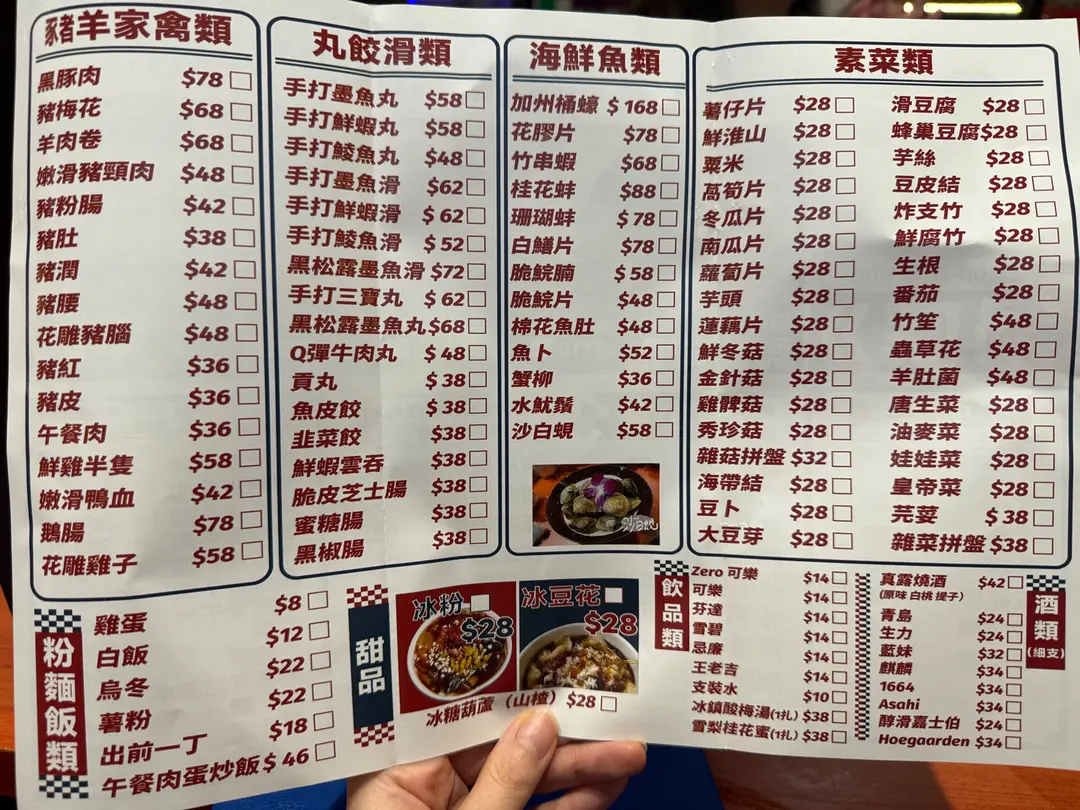 豕者羊家禽類
黑豚肉 $78
豬梅花 $68
羊肉卷 $68
嫩滑豬頸肉 $48
豬粉腸 $42
豬肚 $38
豬潤 $42
豬腰 $48
花雕豬腦 $48
豬紅 $36
豬皮 $36
午餐肉 $36
鮮雞半隻 $58
嫩滑鴨血 $42
鵝腸 $78
花雕雞子 $58
丸餃滑類
手打墨魚丸 $58
手打鮮蝦丸 $58
手打鯪魚丸 $48
手打墨魚滑 $62
手打鮮蝦滑 $62
手打鯪魚滑 $52
黑松露墨魚滑 $72
手打三寶丸 $62
黑松露墨魚丸 $68
Q彈牛肉丸 $48
貢丸 $38
魚皮餃 $38
韭菜餃 $38
鮮蝦雲吞 $38
脆皮芝士腸 $38
蜜糖腸 $38
黑椒腸 $38
海鮮魚類
加州桶蠔 $168
花膠片 $78
竹串蝦 $68
桂花蚌 $88
珊瑚蚌 $78
白鱔片 $78
脆鯇腩 $58
脆鯇片 $48
棉花魚肚 $48
魚卜 $52
蟹柳 $36
水魷鬚 $42
沙白蜆 $58
沙白蜆
素菜類
薯仔片 $28
鮮淮山 $28
粟米 $28
萵筍片 $28
冬瓜片 $28
南瓜片 $28
蘿蔔片 $28
芋頭 $28
蓮藕片 $28
鮮冬菇 $28
金針菇 $28
雞髀菇 $28
秀珍菇 $28
雜菇拼盤 $32
海帶結 $28
豆卜 $28
大豆芽 $28
滑豆腐 $28
蜂巢豆腐 $28
芋絲 $28
豆皮結 $28
炸支竹 $28
鮮腐竹 $28
生根 $28
番茄 $28
竹笙 $48
蟲草花 $48
羊肚菌 $48
唐生菜 $28
油麥菜 $28
娃娃菜 $28
皇帝菜 $28
芫荽 $38
雜菜拼盤 $38
粉麵飯類
雞蛋 $8
白飯 $12
烏冬 $22
薯粉 $22
出前一丁 $18
午餐肉蛋炒飯 $46
甜品
冰粉
$28
冰豆花
$28
冰糖葫蘆（山楂） $28
飲品類
Zero 可樂 $14
可樂 $14
芬達 $14
雪碧 $14
忌廉 $14
王老吉 $14
支裝水 $10
冰鎮酸梅湯(1扎) $38
雪梨桂花蜜(1扎) $38
酒類
(細支)
真露燒酒 $42
(原味 白桃 提子)
青島 $24
生力 $24
藍妹 $32
麒麟 $34
1664 $34
Asahi $34
醇滑嘉士伯 $24
Hoegaarden $34